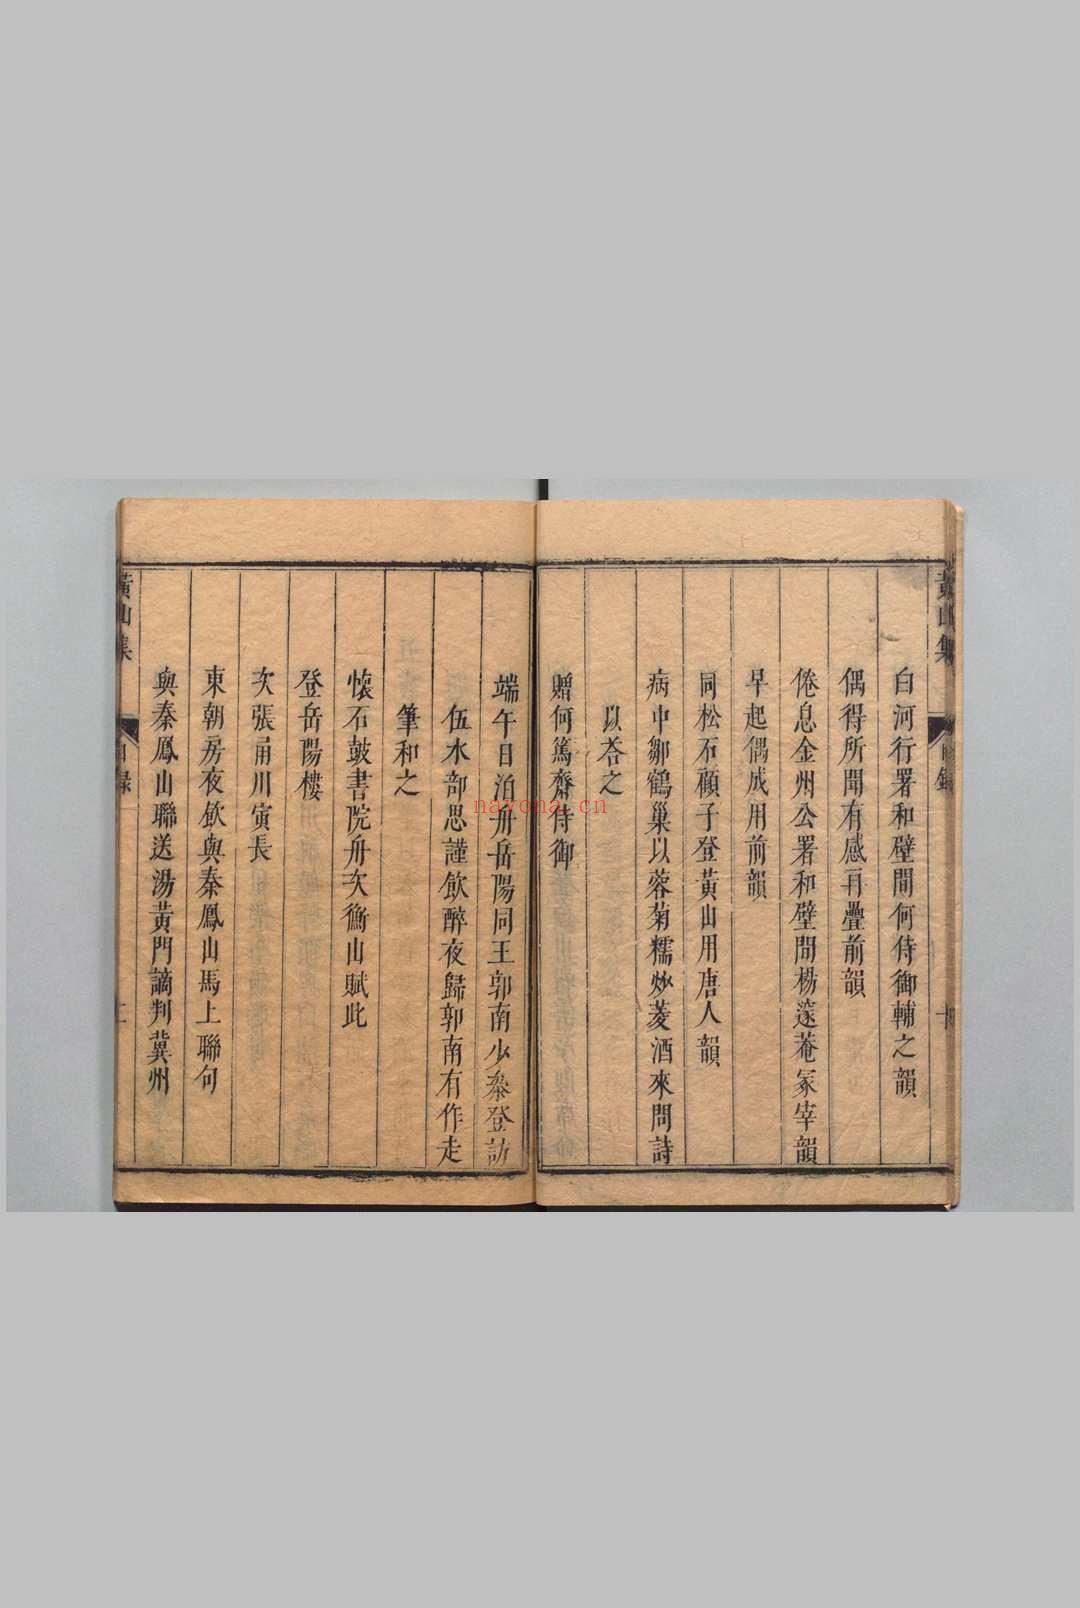 黃山集
目錄
白河行署和壁間何侍御輔之韻
偶得所聞有感再疊前韻
倦息金州公署和壁間楊邃菴冢宰韻
早起偶成用前韻
同松石顧子登黃山用唐人韻
病中鄒鶴巢以蓉菊糯炒菱酒來問詩
以荅之
贈何篤齋侍御
端午日泊册岳陽同王郭南少叅登訪
伍水部思謹飲醉夜歸郭南有作走
筆和之
懷石鼓書院舟次衡山賦此
登岳陽樓
次張甬川寅長
東朝房夜飲與秦鳳山馬上聯句
與秦鳳山聯送湯黃門謫判冀州
黃山集
目錄
nayona.cn